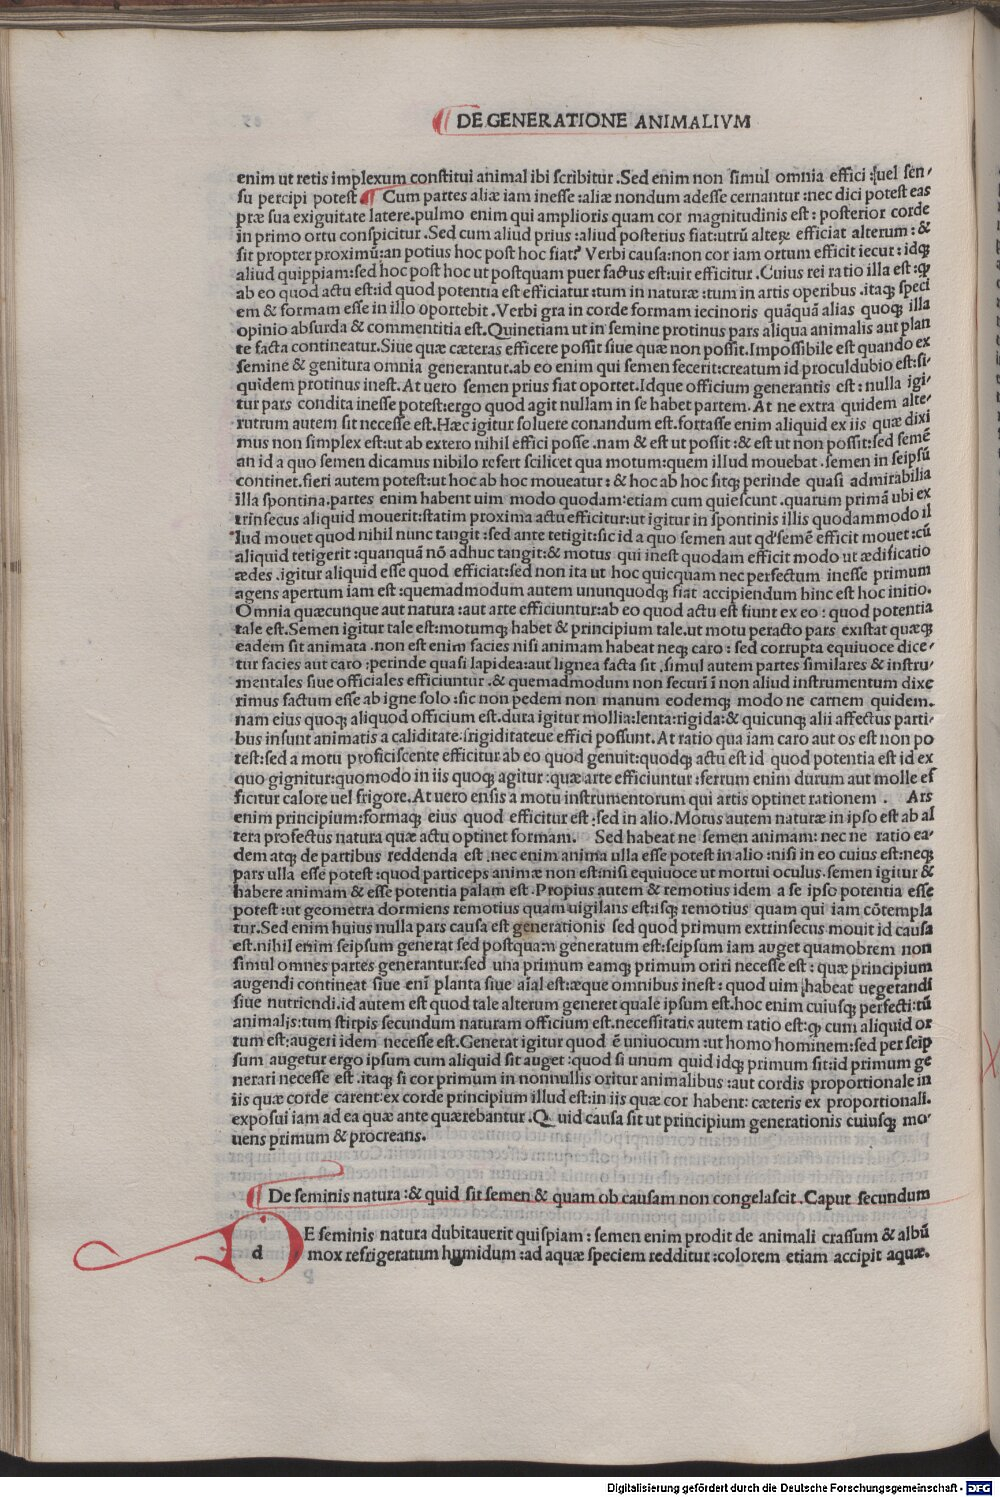 DE GENERATIONE ANIMALIVM
enim ut retis implexum constitui animal ibi scribitur .Sed enim non simul omnia effici :uel sen⸗
su percipi potest Cum partes aliæ iam inesse :aliæ nondum adesse cernantur :nec dici potest eas
præ sua exiguitate latere.pulmo enim qui amplioris quam cor magnitudinis est : posterior corde
in primo ortu conspicitur .Sed cum aliud prius :aliud posterius fiat:utrū alteꝝ efficiat alterum : &
sit propter proximū:an potius hoc post hoc fiat? Verbi causa:non cor iam ortum efficit iecur : idqꝫ
aliud quippiam:sed hoc post hoc ut postquam puer factus est:uir efficitur .Cuius rei ratio illa est :ꝙ
ab eo quod actu est:id quod potentia est efficiatur :tum in naturæ :tum in artis operibus .itaqꝫ speci
em & formam esse in illo oportebit .Verbi gra in corde formam iecinoris quāquā alias quoqꝫ illa
opinio absurda & commentitia est.Quinetiam ut in semine protinus pars aliqua animalis aut plan
te facta contineatur. Siue quæ cæteras efficere possit siue quæ non possit.Impossibile est quando ex
semine & genitura omnia generantur.ab eo enim qui semen fecerit:creatum id proculdubio est:si⸗
quidem protinus inest. At uero semen prius fiat oportet.Idque officium generantis est : nulla igi⸗
tur pars condita inesse potest:ergo quod agit nullam in se habet partem. At ne extra quidem alte⸗
rutrum autem sit necesse est.Hæc igitur soluere conandum est.fortasse enim aliquid ex iis quæ dixi
mus non simplex est:ut ab extero nihil effici posse .nam & est ut possit :& est ut non possit:sed semē
an id a quo semen dicamus nibilo refert scilicet qua motum:quem illud mouebat .semen in seipsū
continet.fieri autem potest:ut hoc ab hoc moueatur : & hoc ab hoc sitqꝫ perinde quasi admirabilia
illa spontina.partes enim habent uim modo quodam:etiam cum quiescunt .quarum primā ubi ex
trinsecus aliquid mouerit:statim proxima actu efficitur:ut igitur in spontinis illis quodammodo il
lud mouet quod nihil nunc tangit :sed ante tetigit:sic id a quo semen aut qd' semē efficit mouet :cū
aliquid tetigerit :quanquā nō adhuc tangit:& motus qui inest quodam efficit modo ut ædificatio
ædes .igitur aliquid esse quod efficiat:sed non ita ut hoc quicquam nec perfectum inesse primum
agens apertum iam est :quemadmodum autem ununquodqꝫ fiat accipiendum hinc est hoc initio.
Omnia quæcunque aut natura :aut arte efficiuntur:ab eo quod actu est fiunt ex eo : quod potentia
tale est.Semen igitur tale est:motumqꝫ habet & principium tale.ut motu peracto pars existat quæqꝫ
eadem sit animata .non est enim facies nisi animam habeat neqꝫ caro : sed corrupta equiuoce dice⸗
tur facies aut caro :perinde quasi lapidea:aut lignea facta sit .simul autem partes similares & instru⸗
mentales siue officiales efficiuntur .& quemadmodum non securī ī non aliud instrumentum dixe
rimus factum esse ab igne solo :sic non pedem non manum eodemqꝫ modo ne carnem quidem.
nam eius quoqꝫ aliquod officium est.dura igitur mollia:lenta:rigida:& quicunqꝫ alii affectus parti⸗
bus insunt animatis a caliditate:frigiditateue effici possunt. At ratio qua iam caro aut os est non po
test:sed a motu proficiscente efficitur ab eo quod genuit:quodqꝫ actu est id quod potentia est id ex
quo gignitur:quomodo in iis quoqꝫ agitur :quæ arte efficiuntur :ferrum enim durum aut molle ef
ficitur calore uel frigore. At uero ensis a motu instrumentorum qui artis optinet rationem . Ars
enim principium:formaqꝫ eius quod efficitur est :sed in alio.Motus autem naturæ in ipso est ab al
tera profectus natura quæ actu optinet formam. Sed habeat ne semen animam: nec ne ratio ea⸗
dem atqꝫ de partibus reddenda est .nec enim anima ulla esse potest in alio :nisi in eo cuius est:neqꝫ
pars ulla esse potest :quod particeps animæ non est:nisi equiuoce ut mortui oculus .semen igitur &
habere animam & esse potentia palam est .Propius autem & remotius idem a se ipso potentia esse
potest :ut geometra dormiens remotius quam uigilans est:isqꝫ remotius quam qui iam cōtempla
tur.Sed enim huius nulla pars causa est generationis sed quod primum extrinsecus mouit id causa
est.nihil enim seipsum generat sed postquam generatum est:seipsum iam auget quamobrem non
simul omnes partes generantur.sed una primum eamqꝫ primum oriri necesse est : quæ principium
augendi contineat siue enī planta siue aīal est:æque omnibus inest : quod uim habeat uegetandi
siue nutriendi.id autem est quod tale alterum generet quale ipsum est.hoc enim cuiusqꝫ perfecti:tū
animalis:tum stirpis secundum naturam officium est.necessitatis autem ratio est:ꝙ cum aliquid or
tum est:augeri idem necesse est.Generat igitur quod ē uniuocum :ut homo hominem:sed per seip
sum augetur ergo ipsum cum aliquid sit auget :quod si unum quid idqꝫ primum sit:id primum ge
nerari necesse est .itaqꝫ si cor primum in nonnullis oritur animalibus :aut cordis proportionale in
iis quæ corde carent:ex corde principium illud est:in iis quæ cor habent: cæteris ex proportionali.
exposui iam ad ea quæ ante quærebantur .Quid causa sit ut principium generationis cuiusqꝫ mo⸗
uens primum & procreans.
De seminis natura :& quid sit semen & quam ob causam non congelascit .Caput secundum
d E seminis natura dubitauerit quispiam : semen enim prodit de animali crassum & albū
mox refrigeratum humidum :ad aquæ speciem redditur :colorem etiam accipit aquæ.
Digitalisierung gefördert durch die Deutsche Forschungsgemeinschaft - DFG